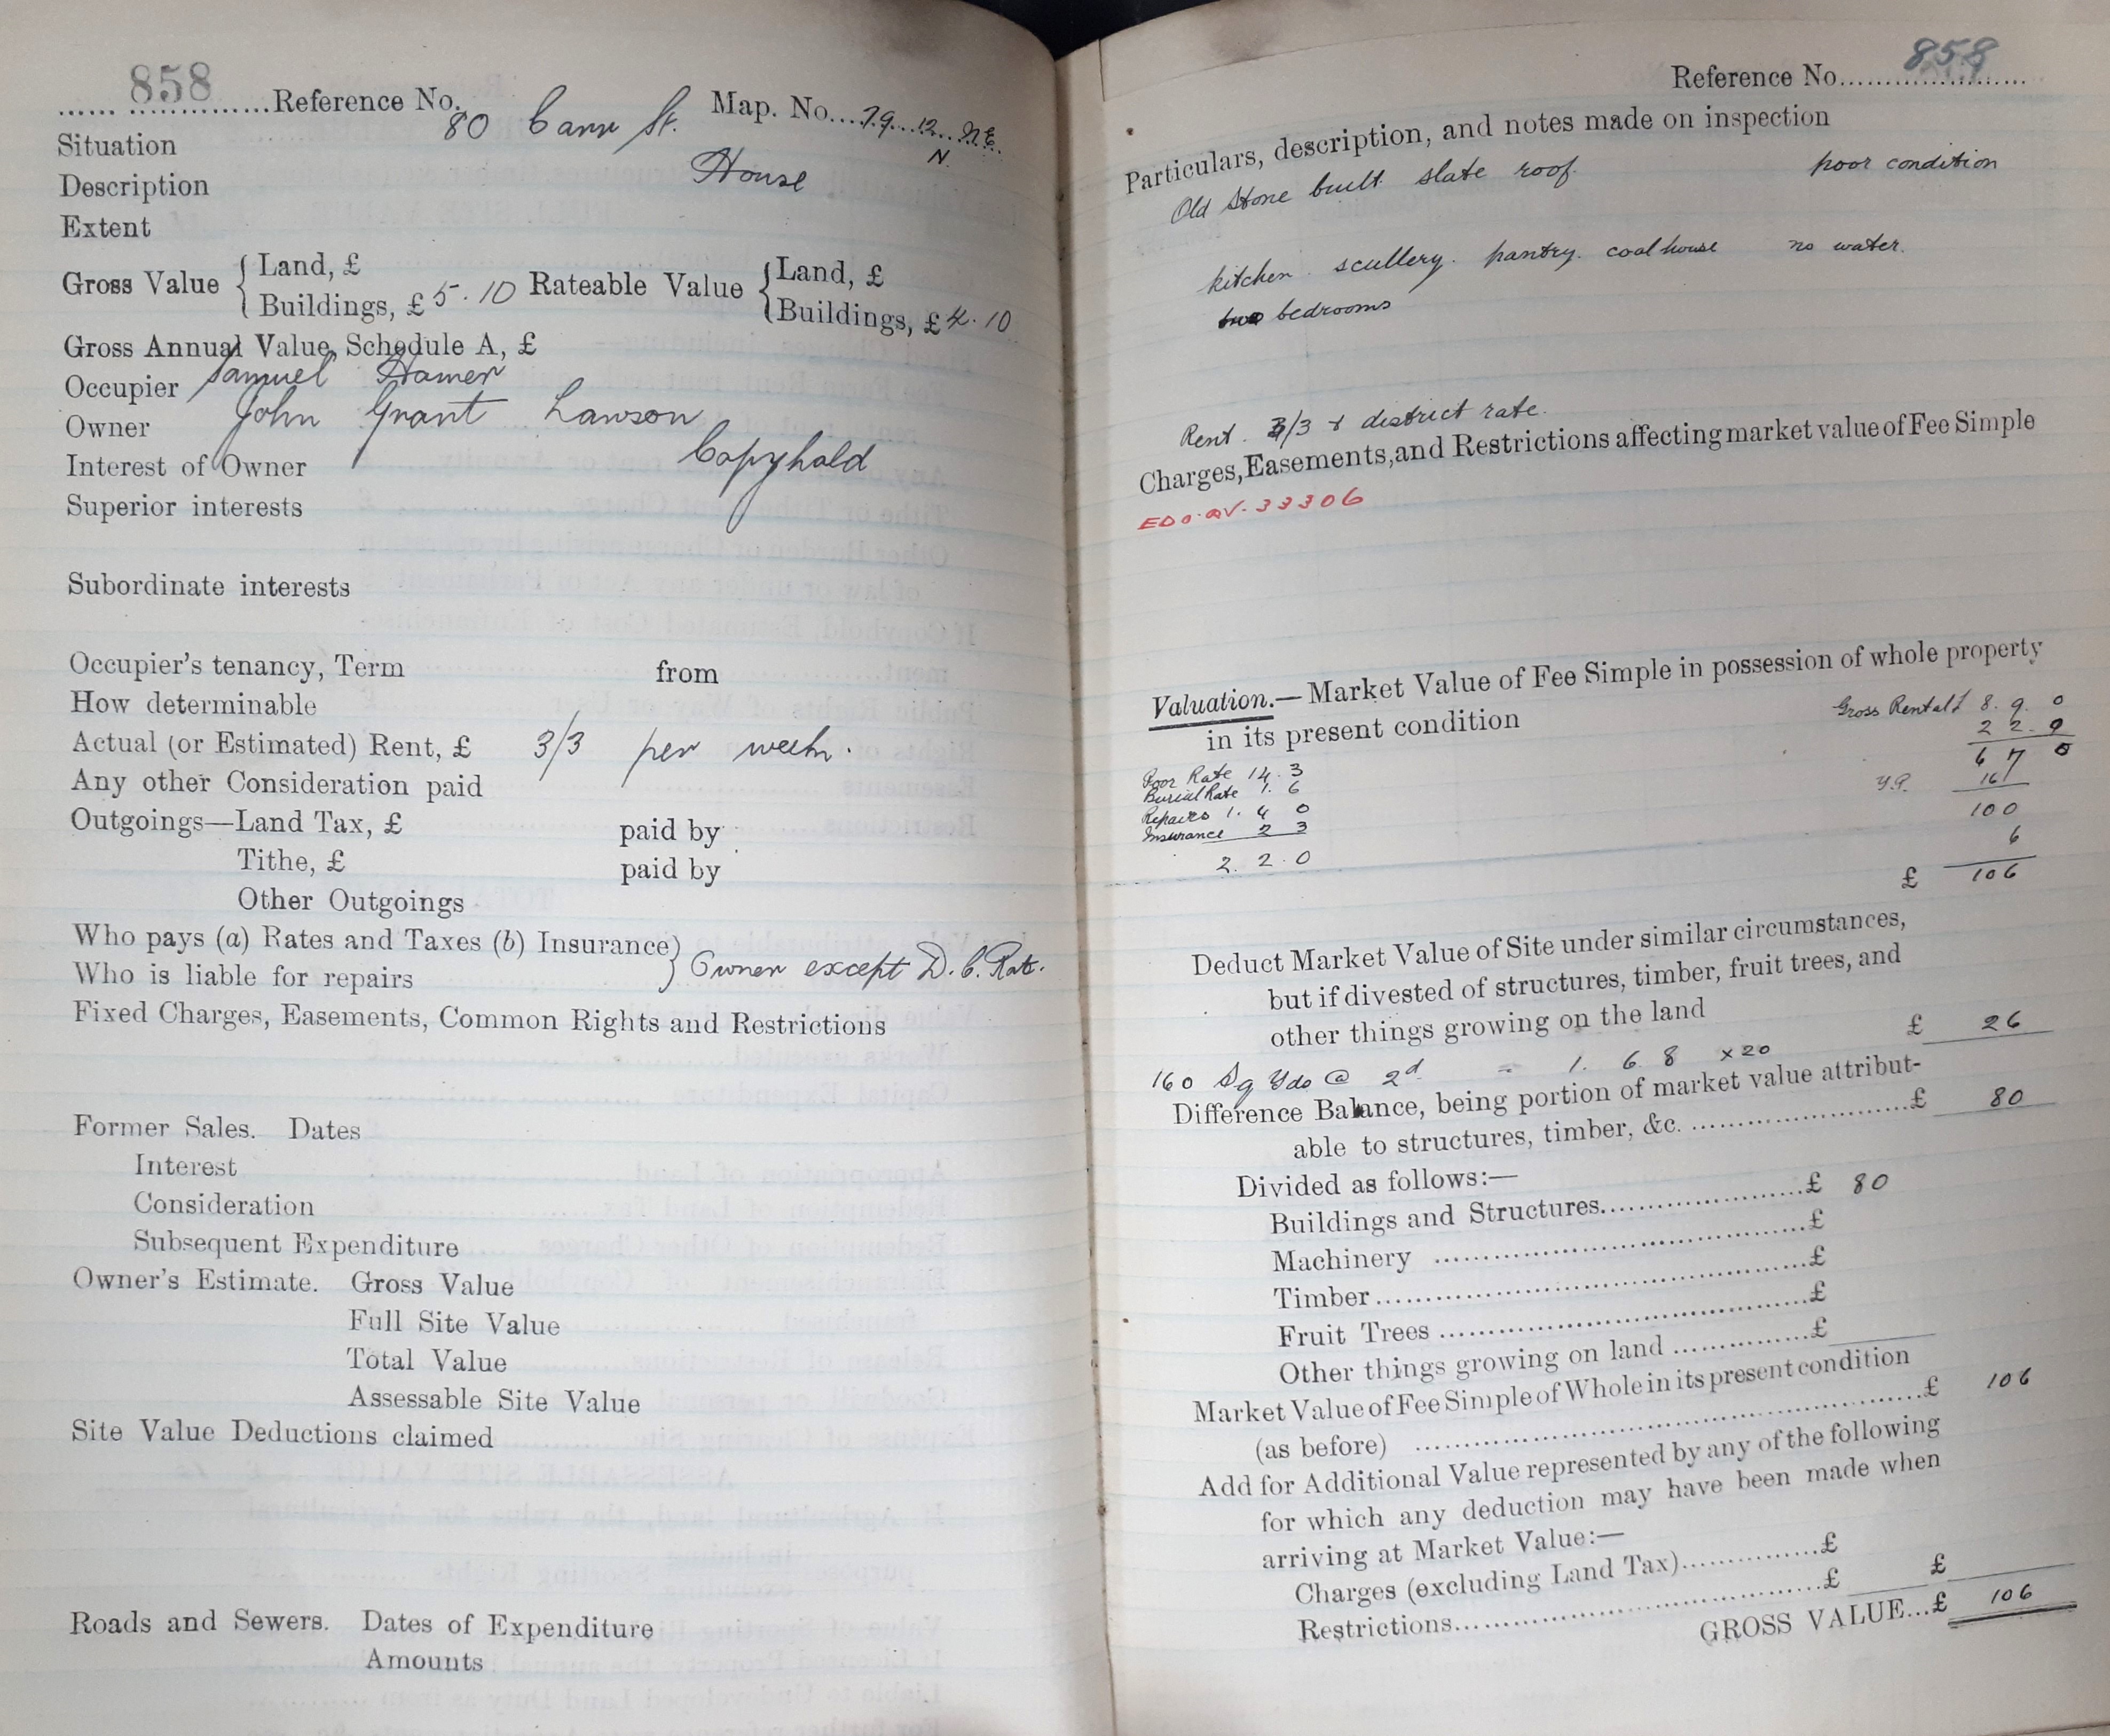 858 Reference No. Map. No. 79. 12. N.E.
N.
Situation 80 Carr St.
Description House
Extent
Gross Value { Land, £
Buildings, £ 5.10 Rateable Value { Land, £
Buildings, £ 4.10
Gross Annual Value, Schedule A, £
Occupier Samuel Hamer
Owner John Grant Lawson
Interest of Owner Copyhold
Superior interests
Subordinate interests
Occupier's tenancy, Term from
How determinable
Actual (or Estimated) Rent, £ 3/3 per week.
Any other Consideration paid
Outgoings—Land Tax, £ paid by
Tithe, £ paid by
Other Outgoings
Who pays (a) Rates and Taxes (b) Insurance }
Who is liable for repairs } Owner except D.C. Rate.
Fixed Charges, Easements, Common Rights and Restrictions
Former Sales. Dates
Interest
Consideration
Subsequent Expenditure
Owner's Estimate. Gross Value
Full Site Value
Total Value
Assessable Site Value
Site Value Deductions claimed
Roads and Sewers. Dates of Expenditure
Amounts
Reference No. 858
Particulars, description, and notes made on inspection
Old Stone built slate roof. poor condition
kitchen. scullery. pantry. coal house no water.
two bedrooms
Rent. 3/3 + district rate.
Charges, Easements, and Restrictions affecting market value of Fee Simple
EDO. QV. 33306
Valuation.—Market Value of Fee Simple in possession of whole property
in its present condition
Gross Rental £ 8. 9. 0
2 2. 0
6 7 0
Y.P. 16
100
6
£ 106
Poor Rate 14. 3
Burial Rate 1. 6
Repairs 1. 4 0
Insurance 2 3
2. 2. 0
Deduct Market Value of Site under similar circumstances,
but if divested of structures, timber, fruit trees, and
other things growing on the land £ 26
160 Sq Yds @ 2d = 1. 6. 8 x20
Difference Balance, being portion of market value attribut-
able to structures, timber, &c. £ 80
Divided as follows:—
Buildings and Structures £ 80
Machinery £
Timber £
Fruit Trees £
Other things growing on land £
Market Value of Fee Simple of Whole in its present condition
(as before) £ 106
Add for Additional Value represented by any of the following
for which any deduction may have been made when
arriving at Market Value:—
Charges (excluding Land Tax) £
Restrictions £ £
GROSS VALUE...£ 106